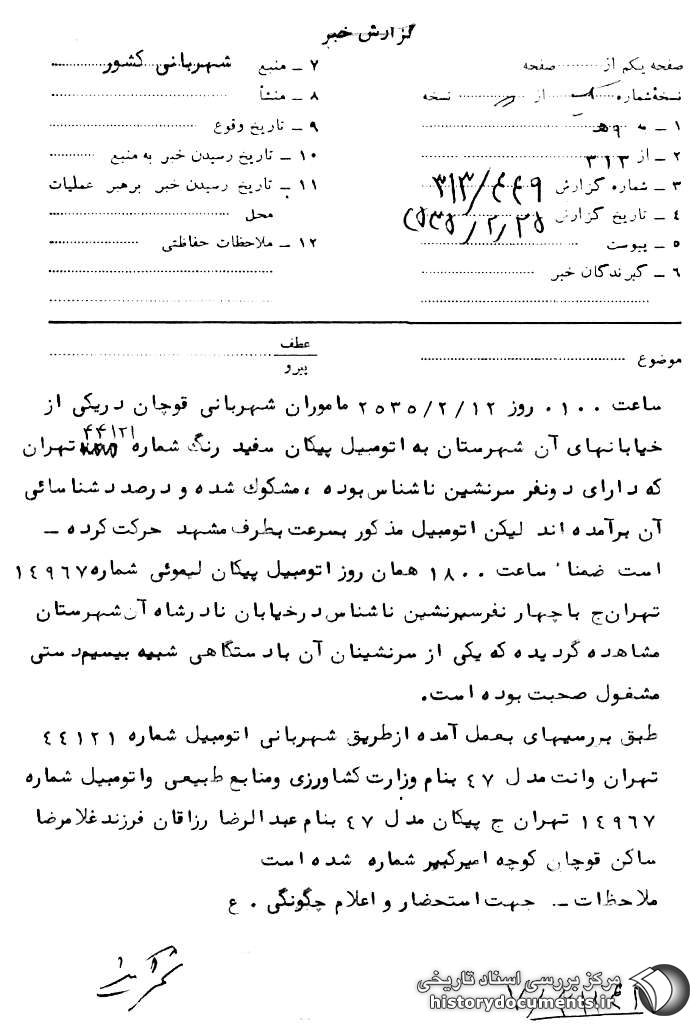 گزارش خبر
صفحه یکم از صفحه
نسخهٔ شماره از نسخه
۱ ـ به ۹هـ
۲ ـ از ۳۱۳
۳ ـ شماره گزارش ۳۱۳/۴۴۹
۴ ـ تاریخ گزارش ۲۵۳۵/۲/۲۵
۵ ـ پیوست
۶ ـ گیرندگان خبر
۷ ـ منبع شهربانی کشور
۸ ـ منشأ
۹ ـ تاریخ وقوع
۱۰ ـ تاریخ رسیدن خبر به منبع
۱۱ ـ تاریخ رسیدن خبر برهبر عملیات
محل
۱۲ ـ ملاحظات حفاظتی
موضوع
عطف
پیرو
ساعت ۰۱۰۰ روز ۲۵۳۵/۲/۱۲ ماموران شهربانی قوچان دریکی از
خیابانهای آن شهرستان به اتومبیل پیکان سفید رنگ شماره ۴۴۱۲۱ تهران
که دارای دونفر سرنشین ناشناس بوده ، مشکوک شده و درصدد شناسائی
آن برآمده اند لیکن اتومبیل مذکور بسرعت بطرف مشهد حرکت کرده ـ
است ضمنا" ساعت ۱۸۰۰ همان روز اتومبیل پیکان لیموئی شماره ۱۴۹۶۷
تهران ج باچهار نفرسرنشین ناشناس درخیابان نادرشاه آن شهرستان
مشاهده گردیده که یکی از سرنشینان آن بادستگاهی شبیه بیسیم دستی
مشغول صحبت بوده است.
طبق بررسیهای بعمل آمده ازطریق شهربانی اتومبیل شماره ۴۴۱۲۱
تهران وانت مدل ۴۷ بنام وزارت کشاورزی ومنابع طبیعی واتومبیل شماره
۱۴۹۶۷ تهران ج پیکان مدل ۴۷ بنام عبدالرضا رزاقان فرزند غلامرضا
ساکن قوچان کوچه امیرکبیر شماره شده است
ملاحظات ـ. جهت استحضار و اعلام چگونگی . ع
مرکز بررسی اسناد تاریخی
historydocuments.ir